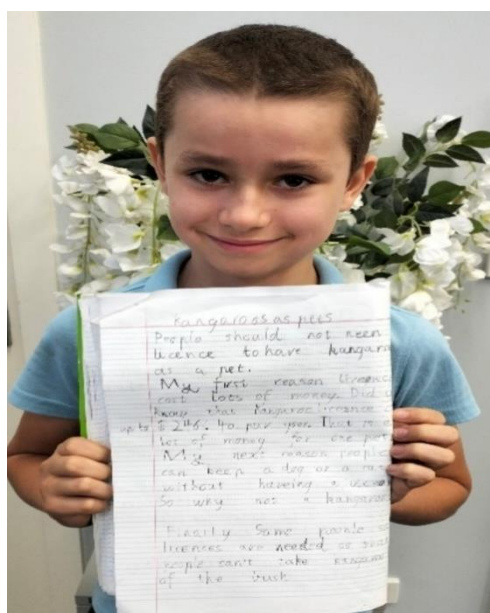 Kangaroos as pets
People should not neen
licence to have kangaro
as a pet.
My first reason licence
cost lots of money. Did
know that kangaroo licence
up to $246.40 par year. That is
lot of money for one pet
My next reason people
can keep a dog or a
without haveing a licence
So why not a kangaroo
Finally Some people
licences are needed so
people can't take kangaroo
of the bush